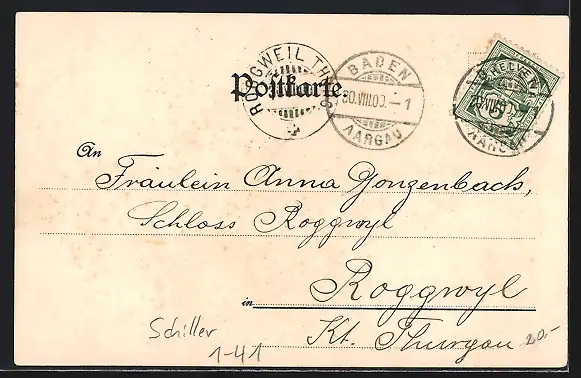 ROGGWEIL TH
Postkarte.
BADEN
30.VIII.00.-1
AARGAU
5
An
Fräulein Anna Gonzenbach,
Schloss Roggwyl
in Roggwyl
Kt. Thurgau
Schiller
1-41
20.-